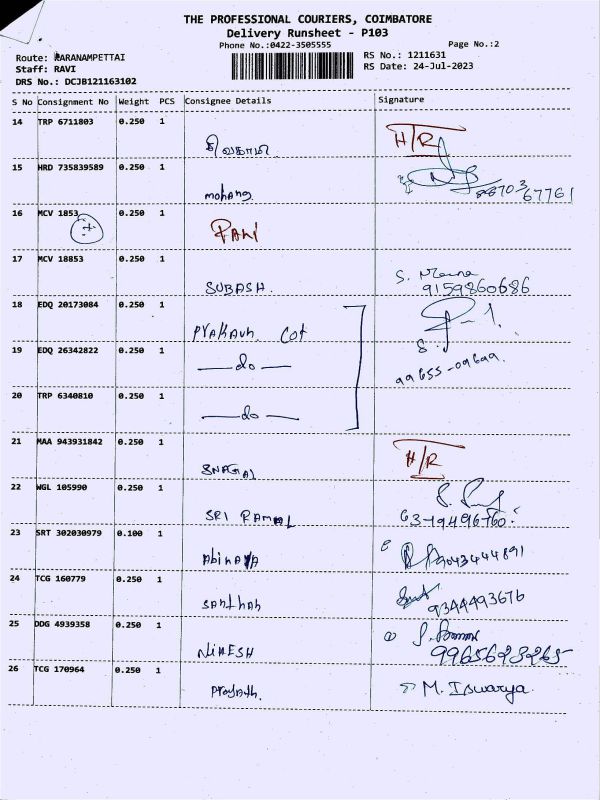 THE PROFESSIONAL COURIERS, COIMBATORE
Delivery Runsheet - P103
Phone No.:0422-3505555
Page No.:2
Route: WARANAMPETTAI
RS No.: 1211631
Staff: RAVI
RS Date: 24-Jul-2023
DRS No.: DCJB121163102
S No Consignment No Weight PCS Consignee Details Signature
14 TRP 6711803 0.250 1
சிவகாமி H/R
15 HRD 735839589 0.250 1
mohang 88703 67761
16 MCV 1853 0.250 1
RANI
17 MCV 18853 0.250 1
SUBASH. S. 9159860686
18 EDQ 20173084 0.250 1
Prakash. Cot
19 EDQ 26342822 0.250 1
—do— 99655-09699.
20 TRP 6340810 0.250 1
—do—
21 MAA 943931842 0.250 1
H/R
22 WGL 105990 0.250 1
SRI 63-79496760.
23 SRT 302030979 0.100 1
Abinaya 9043444891
24 TCG 160779 0.250 1
Santhan 9344493676
25 DDG 4939358 0.250 1
NIMESH 9965623265
26 TCG 170964 0.250 1
M. Iswarya.